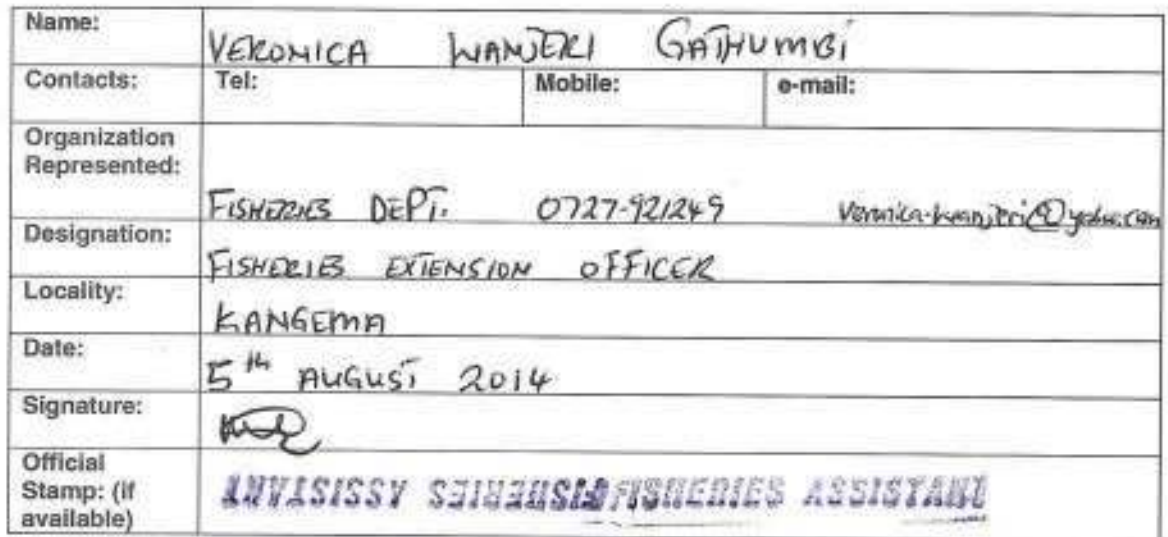 Name: VERONICA WANJERI GATHUMBI
Contacts: Tel: Mobile: e-mail:
Organization
Represented:
FISHERIES DEPT. 0727-921249 Veronica-wanjeri@yahoo.com
Designation:
FISHERIES EXTENSION OFFICER
Locality:
KANGEMA
Date:
5th AUGUST 2014
Signature:
Official
Stamp: (if
available)
FISHERIES ASSISTANT